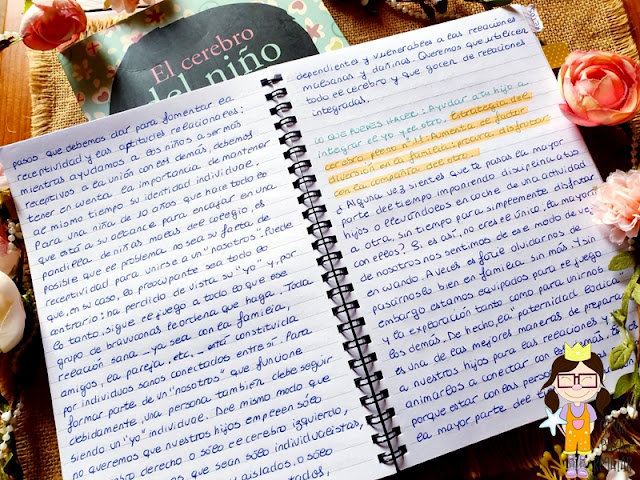 El cerebro
del niño
pasos que debemos dar para fomentar la
receptividad y las aptitudes relacionales:
mientras ayudamos a los niños a ser más
receptivos a la unión con los demás, debemos
tener en cuenta la importancia de mantener
al mismo tiempo su identidad individual.
Para una niña de 10 años que hace todo lo
que está a su alcance para encajar en una
pandilla de niñas malas del colegio, es
posible que el problema no sea su falta de
receptividad para unirse a un "nosotros". Puede
que, en su caso, lo preocupante sea todo lo
contrario: ha perdido de vista su "yo" y, por
lo tanto, sigue el juego a todo lo que ese
grupo de bravuconas le ordena que haga. Toda
relación sana _ya sea con la familia,
amigos, la pareja, etc,_ está constituida
por individuos sanos conectados entre sí. Para
formar parte de un "nosotros" que funcione
debidamente, una persona también debe seguir
siendo un "yo" individual. Del mismo modo que
no queremos que nuestros hijos empleen sólo
cerebro derecho o sólo el cerebro izquierdo,
que sean sólo individualistas,
y aislados, o sólo
dependientes y vulnerables a las relaciones
malsanas y dañinas. Queremos que utilicen
todo el cerebro y que gocen de relaciones
integradas.
LO QUE PUEDES HACER: Ayudar a tu hijo a
integrar el yo y el otro. Estrategia del
cerebro pleno nº 11: Aumenta el factor
diversión en la familia: procura disfrutar
con la compañía del otro.
¿Alguna vez sientes que te pasas la mayor
parte del tiempo imponiendo disciplina a tus
hijos o llevándolos en coche de una actividad
a otra, sin tiempo para simplemente disfrutar
con ellos? Si es así, no eres el único, la mayoría
de nosotros nos sentimos de ese modo de vez
en cuando. A veces es fácil olvidarnos de
pasárnoslo bien en familia sin más. Y sin
embargo estamos equipados para el juego
y la exploración tanto como para unirnos
los demás. De hecho, la "paternidad lúdica"
es una de las mejores maneras de preparar
a nuestros hijos para las relaciones y
animarlos a conectar con los demás.
porque estar con las personas
la mayor parte del